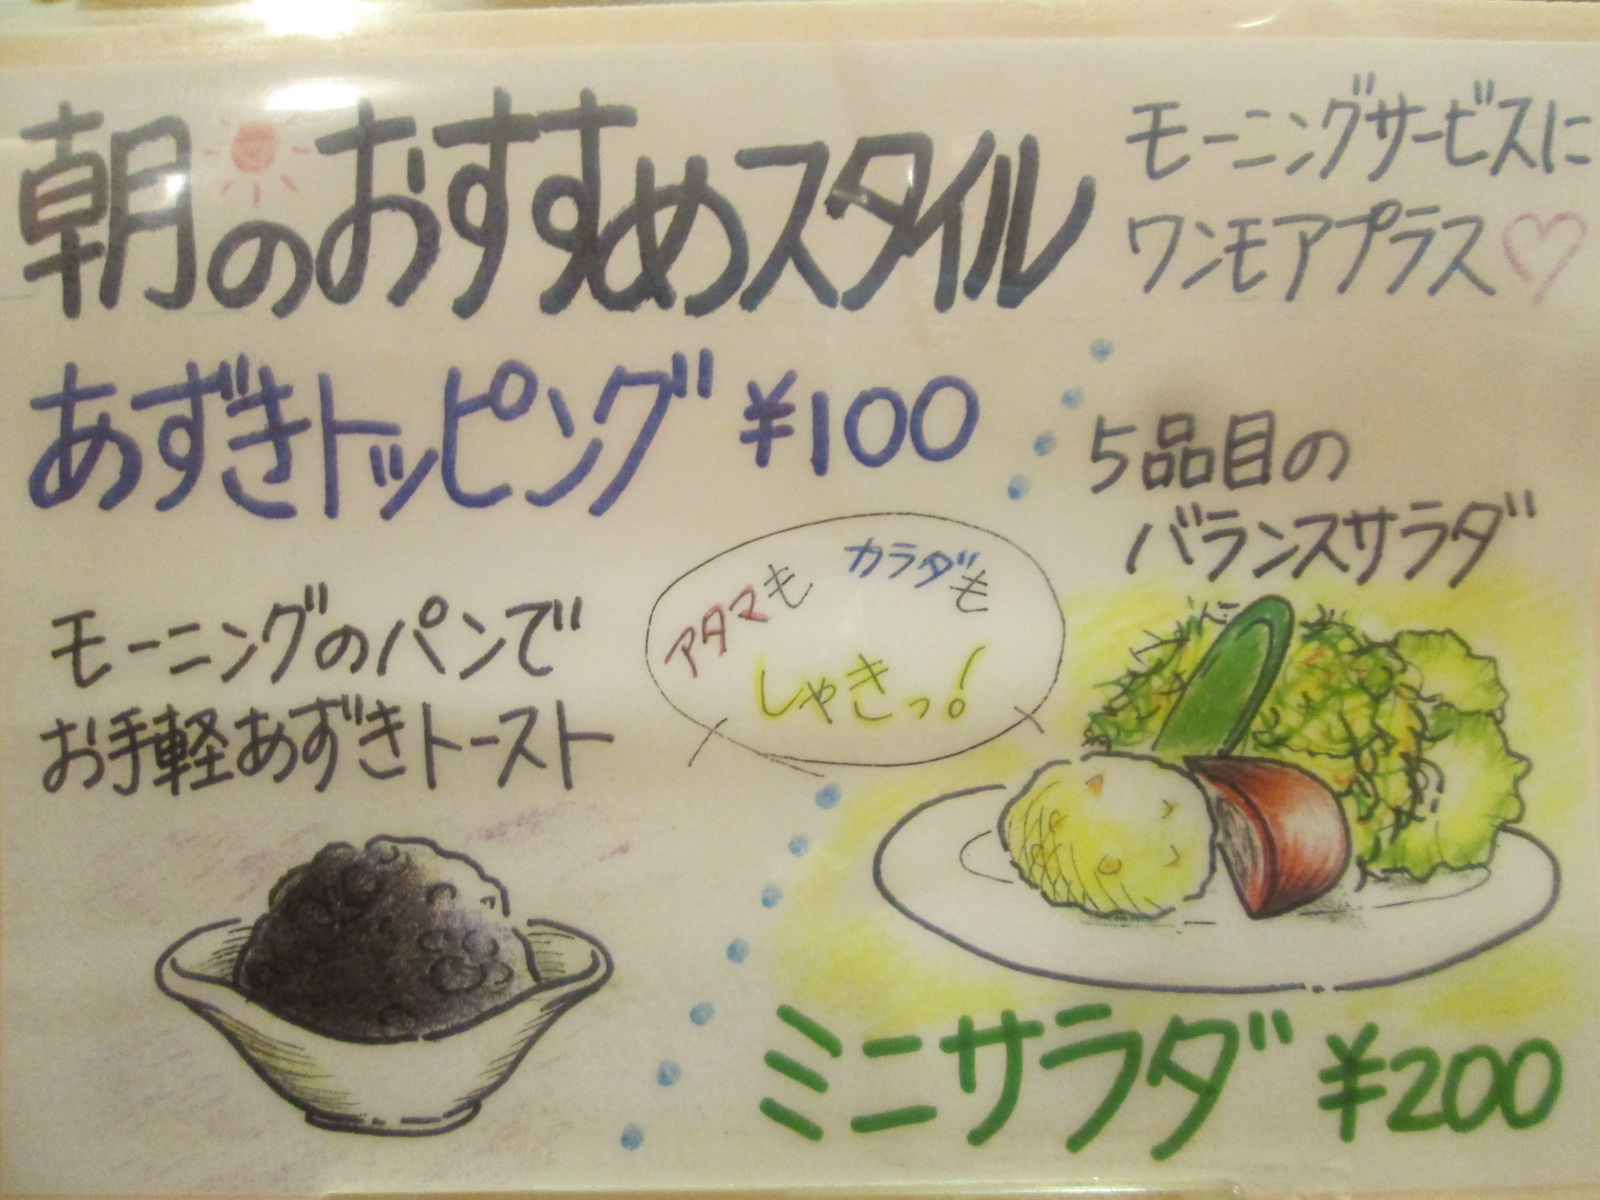 朝のおすすめスタイル
モーニングサービスに
ワンモアプラス♡
あずきトッピング ¥100
モーニングのパンで
お手軽あずきトースト
アタマも カラダも
しゃきっ!
5品目の
バランスサラダ
ミニサラダ ¥200